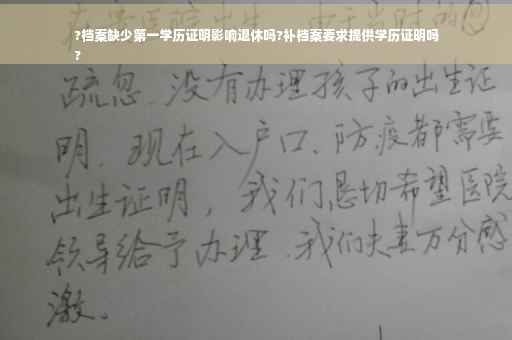 ?档案缺少第一学历证明影响退休吗?补档案要求提供学历证明吗
?
疏忽.没有办理孩子的出生证
明.现在入户口、防疫都需要
出生证明，我们恳切希望医院
领导给予办理.我们夫妻万分感
激。